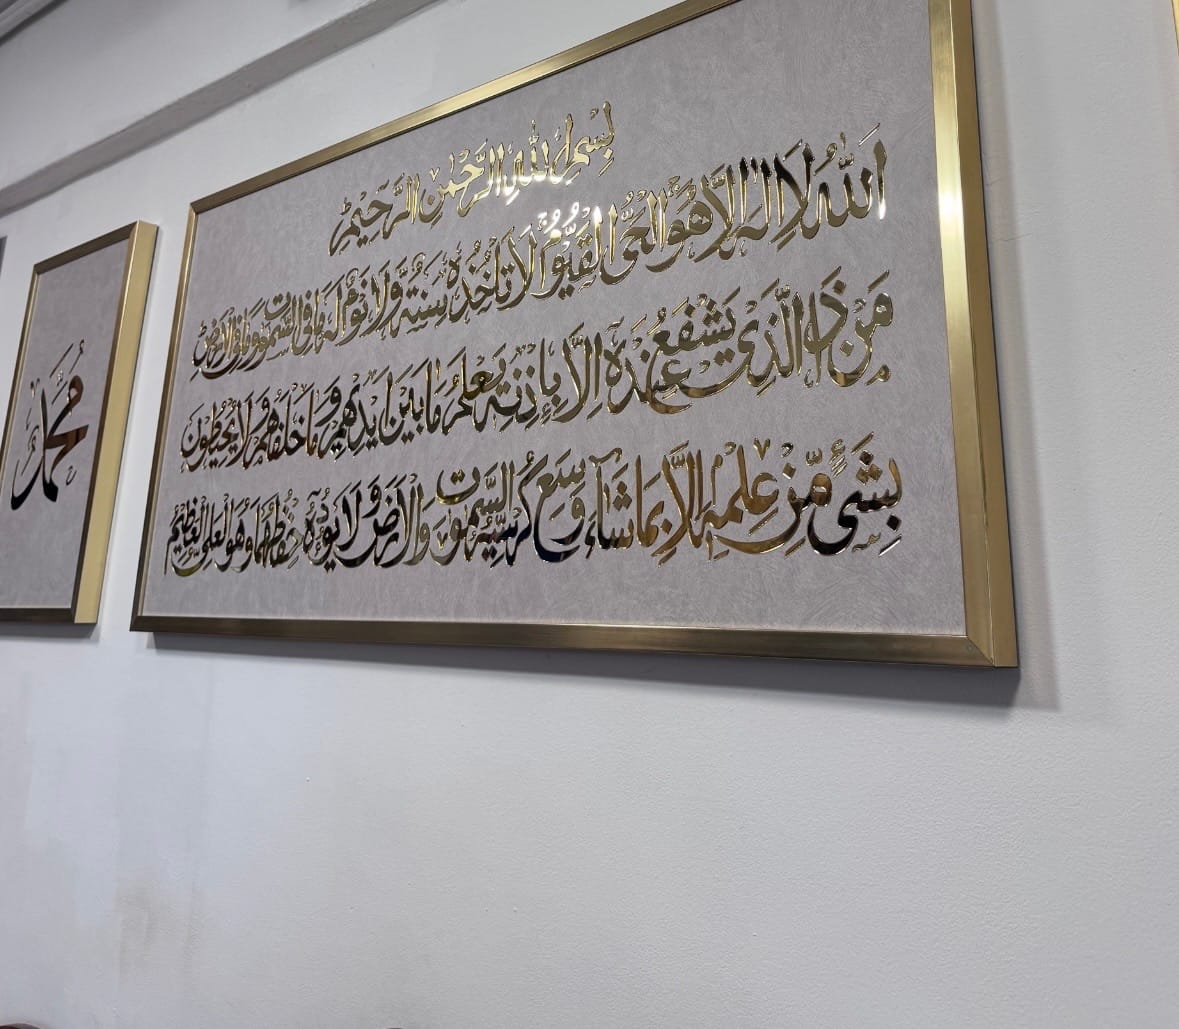 بِسْمِ اللهِ الرَّحْمٰنِ الرَّحِيْمِ
اَللهُ لَا اِلٰهَ اِلَّا هُوَ الْحَيُّ الْقَيُّوْمُ لَا تَأْخُذُهٗ سِنَةٌ وَّلَا نَوْمٌ لَهٗ مَا فِي السَّمٰوٰتِ وَمَا فِي الْاَرْضِ
مَنْ ذَا الَّذِيْ يَشْفَعُ عِنْدَهٗ اِلَّا بِاِذْنِهٖ يَعْلَمُ مَا بَيْنَ اَيْدِيْهِمْ وَمَا خَلْفَهُمْ وَلَا يُحِيْطُوْنَ
بِشَيْءٍ مِّنْ عِلْمِهٖ اِلَّا بِمَا شَآءَ وَسِعَ كُرْسِيُّهُ السَّمٰوٰتِ وَالْاَرْضَ وَلَا يَئُوْدُهٗ حِفْظُهُمَا وَهُوَ الْعَلِيُّ الْعَظِيْمُ
مُحَمَّد